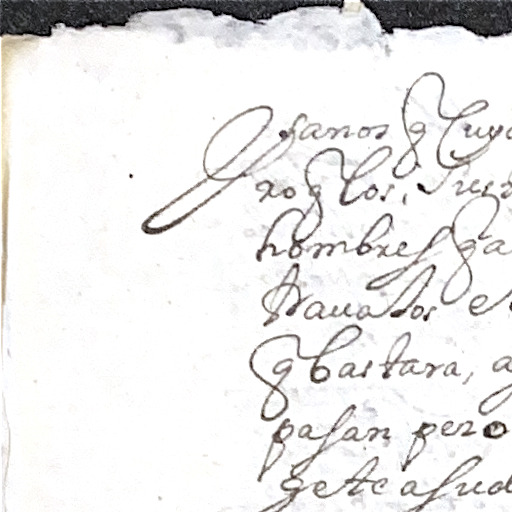 sanos q̃ luy
ro q̃ los, Jues
hombres q̃ a
travaxos e
q̃ bastara, a
pasan pero
q este asud